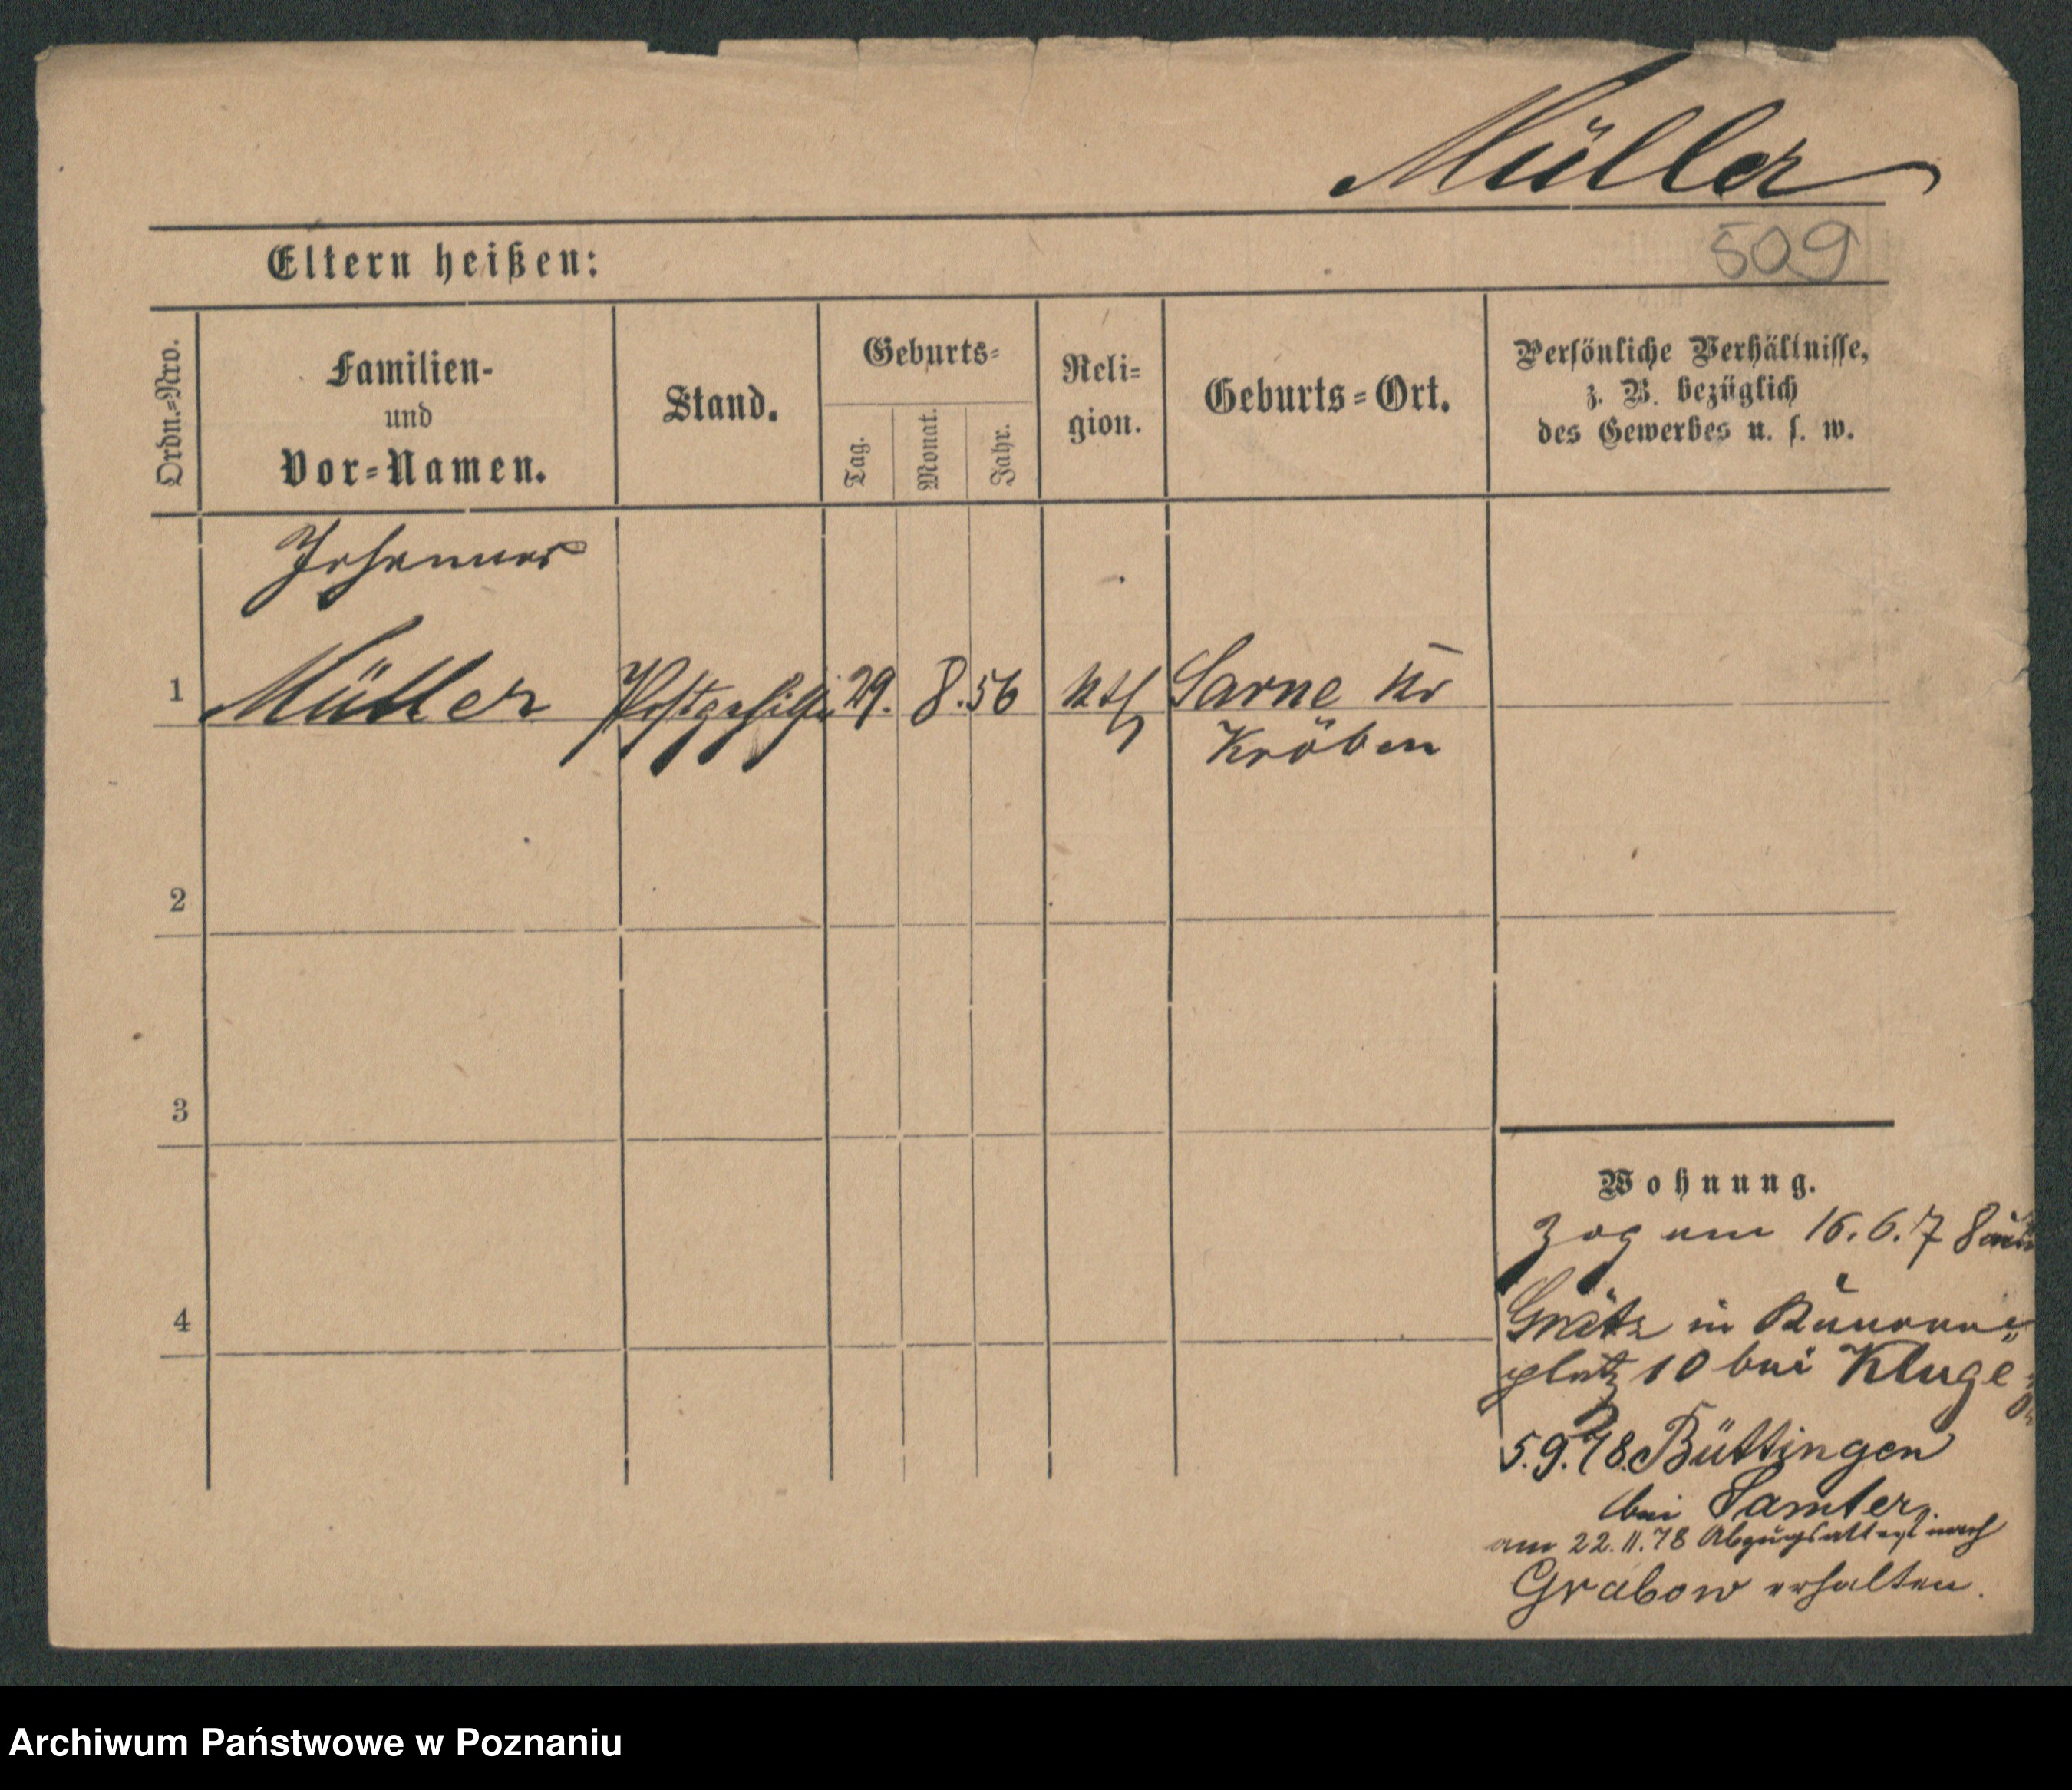 Müller
509
Eltern heißen:
Ordn.-Nro.
Familien-
und
Vor-Namen.
Stand.
Geburts-
Tag.
Monat.
Jahr.
Reli-
gion.
Geburts-Ort.
Persönliche Verhältnisse,
z. B. bezüglich
des Gewerbes u. s. w.
Johannes
1 Müller Postgehilfe 29. 8. 56 kth Sarne Kr
Kröben
2
3
4
Wohnung.
Zog am 16.6.78 aus
Grätz in Kanonen-
platz 10 bei Kluge
5.9.78. Büttingen
bei Samter.
am 22.11.78 Abzugsattest nach
Grabow erhalten.
Archiwum Państwowe w Poznaniu